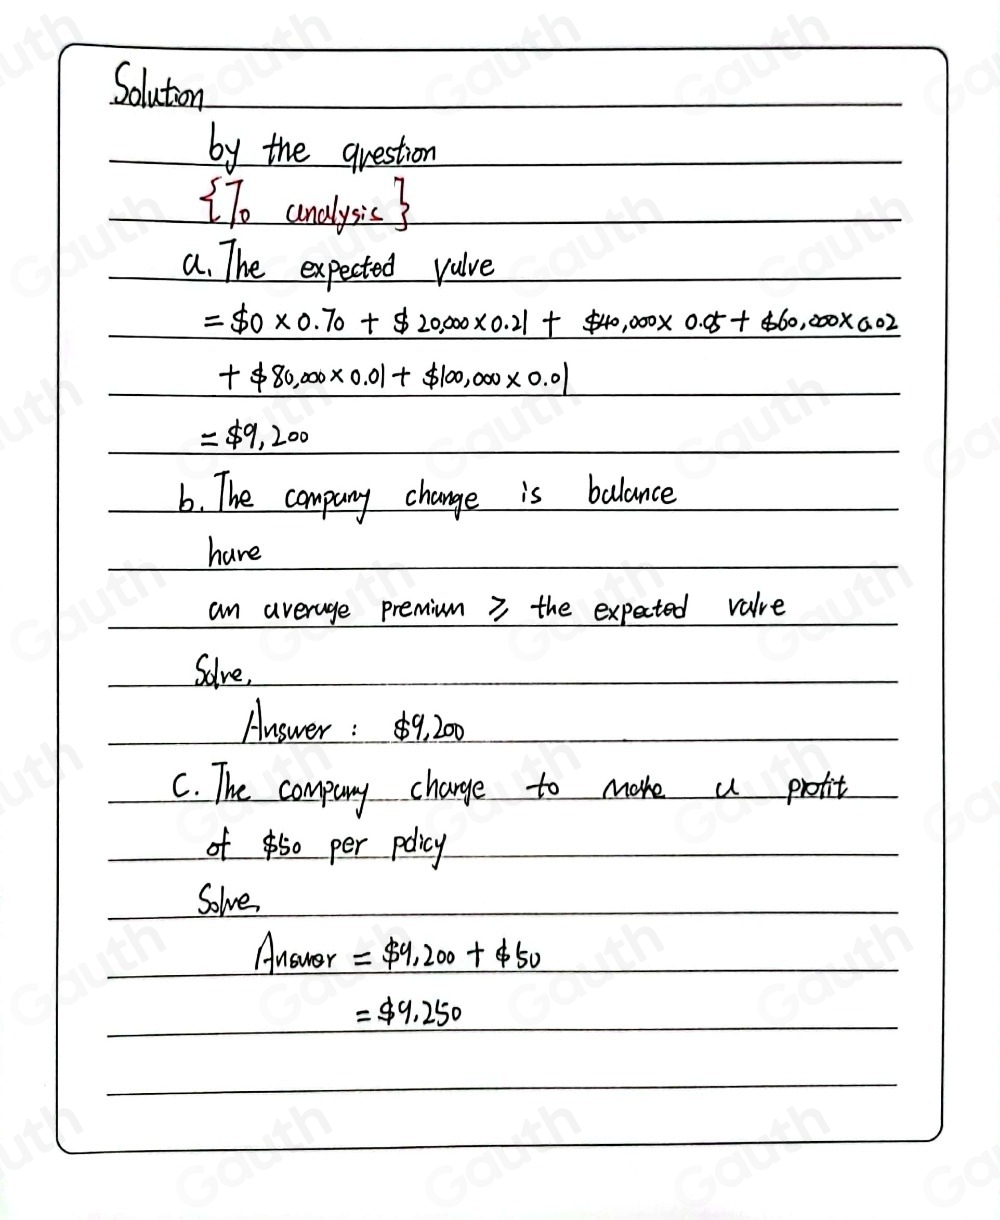 Solution
by the question
{To analysis}
a. The expected value
= $0 × 0.70 + $20,000 × 0.21 + $40,000 × 0.05 + $60,000 × 0.02
+ $80,000 × 0.01 + $100,000 × 0.01
= $9,200
b. The company change is balance
have
an average premium ⩾ the expected value
Solve,
Answer : $9,200
C. The company charge to make a profit
of $50 per policy
Solve,
Answer = $9,200 + $50
= $9,250
Gauth